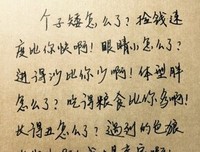 个子矮怎么了?捡钱速
度比你快啊!眼睛小怎么了?
进得沙比你少啊!体型胖
怎么了?吃得粮食比你多啊!
长得丑怎么了?遇到的色狼